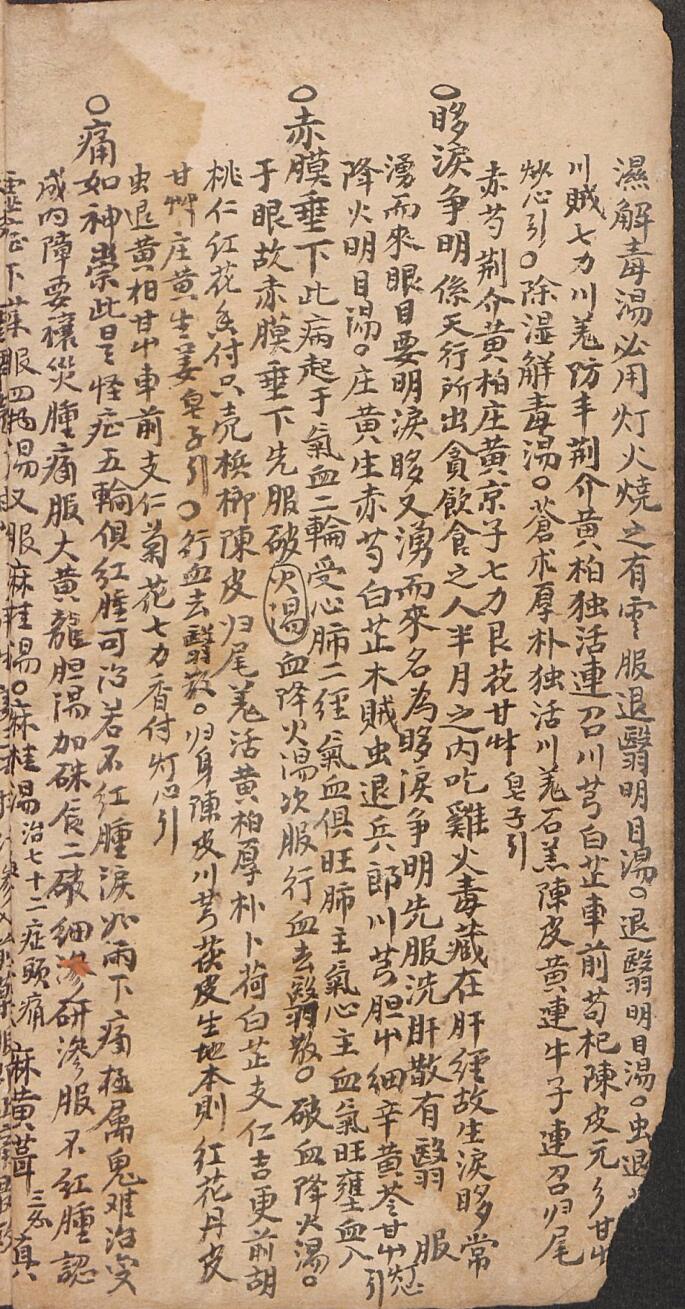 濕解毒湯必用灯火燒之有雲服退翳明目湯。退翳明目湯。虫退
川賊七力川羌防丰荆介黄柏独活連召川芎白芷車前苟杞陳皮元参甘艸
灯心引。除湿解毒湯。蒼朮厚朴独活川羌石羔陳皮黄連牛子連召归尾
赤芍荆介黄柏庄黄京子七力艮花甘艸皂子引
○眵淚争明係天行所出貪飲食之人半月之内吃雞火毒藏在肝經故生淚眵常
湧而來眼目要明淚眵又湧而來名為眵淚争明先服洗肝散有翳服
降火明目湯。庄黄生赤芍白芷木賊虫退兵郎川芎胆艸细辛黄芩甘艸引
○赤膜垂下此病起于氣血二輪受心肺二經氣血俱旺肺主氣心主血氣旺壅血入
于眼故赤膜垂下先服破火湯血降火湯次服行血去翳散。破血降火湯。
桃仁红花香付只壳梹榔陳皮归尾羗活黄柏厚朴卜荷白芷支仁吉更前胡
甘艸庄黄生姜皂子引。行血去翳散。归身陳皮川芎茯皮生地本則红花丹皮
虫退黄柏甘艸車前支仁菊花七力香付灯心引
○痛如神祟此是怪症五輪俱红腫可治若不红腫淚如雨下痛極属鬼难治变
成内障要禳災腫痛服大黄龍胆湯加硃辰二破细渗研渗服不红腫認
下藥服四物湯又服麻桂湯。麻桂湯治七十二症頭痛麻黄